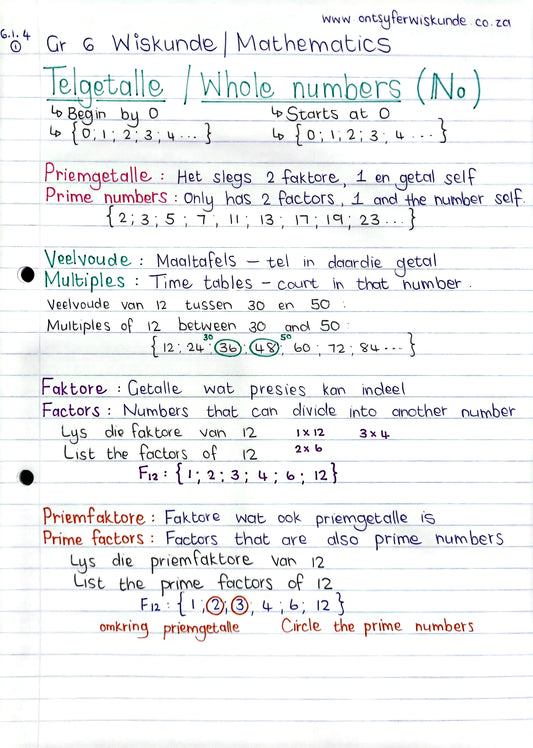 www ontsyferwiskunde.co.za
6.1.4
①
Gr 6 Wiskunde | Mathematics
Telgetalle / Whole numbers (No)
↳ Begin by 0 ↳ Starts at 0
↳ {0; 1; 2; 3; 4 ... } ↳ {0; 1; 2; 3; 4 ... }
Priemgetalle : Het slegs 2 faktore, 1 en getal self
Prime numbers : Only has 2 factors, 1 and the number self.
{2; 3; 5; 7, 11; 13; 17; 19; 23 ... }
Veelvoude : Maaltafels – tel in daardie getal
Multiples : Time tables – count in that number.
Veelvoude van 12 tussen 30 en 50 :
Multiples of 12 between 30 and 50 :
30 50
{12; 24; 36; 48; 60; 72; 84 ... }
Faktore : Getalle wat presies kan indeel
Factors : Numbers that can divide into another number
Lys die faktore van 12 1 x 12 3 x 4
List the factors of 12 2 x 6
F12 : {1; 2; 3; 4; 6; 12}
Priemfaktore : Faktore wat ook priemgetalle is
Prime factors : Factors that are also prime numbers
Lys die priemfaktore van 12
List the prime factors of 12
F12 : {1; 2, 3, 4; 6; 12}
omkring priemgetalle Circle the prime numbers